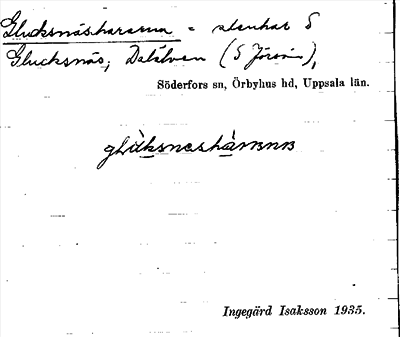 Glucksnäshararna = stenhar S
Glucksnäs, Dalälven (S Jörsön),
Söderfors sn, Örbyhus hd, Uppsala län.
Ingegärd Isaksson 1935.